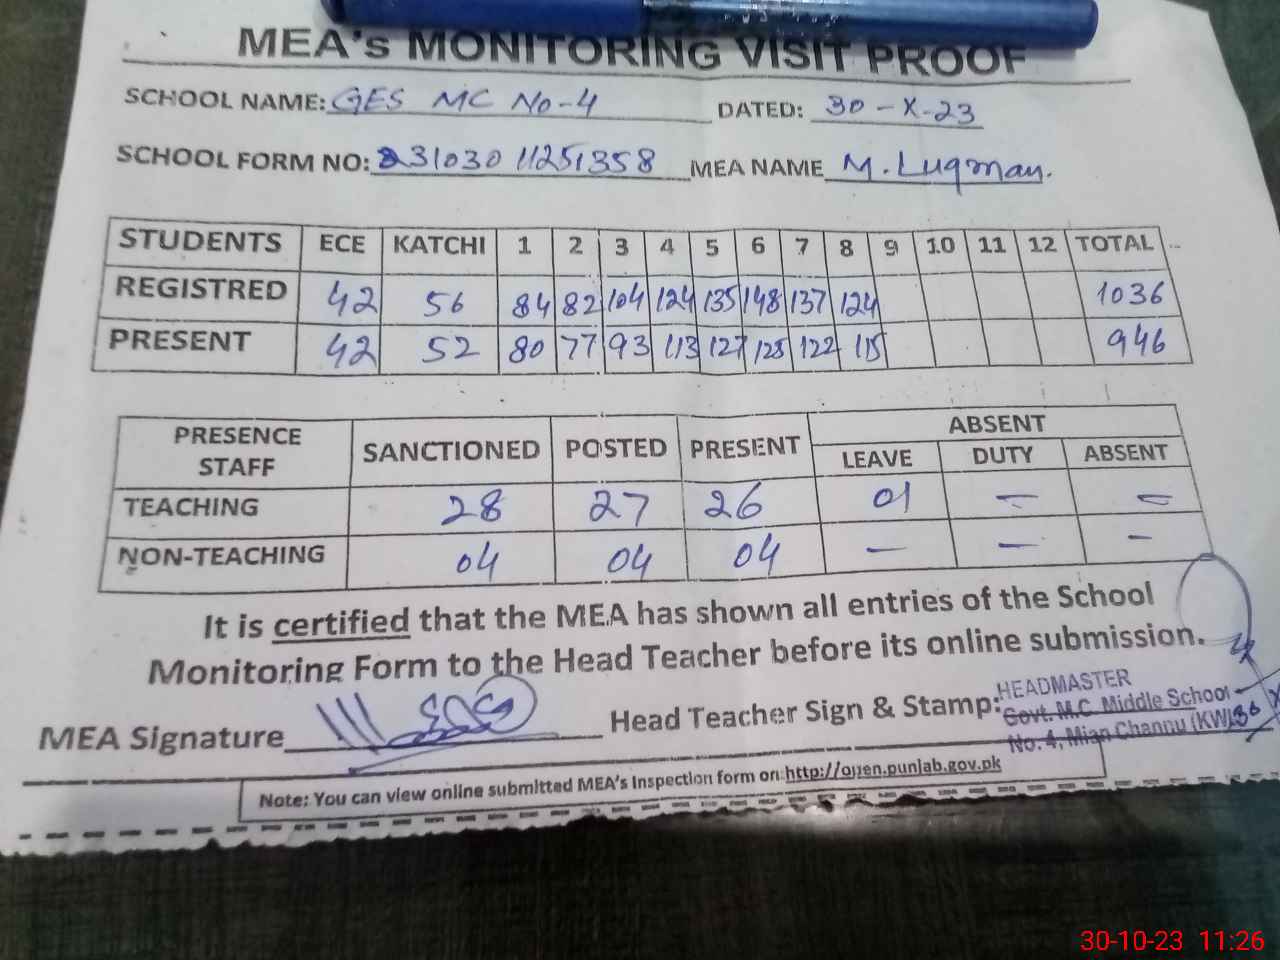 MEA's MONITORING VISIT PROOF
SCHOOL NAME: GES MC No-4 DATED: 30-X-23
SCHOOL FORM NO: 231030 11251358 MEA NAME M. Luqman.
STUDENTS ECE KATCHI 1 2 3 4 5 6 7 8 9 10 11 12 TOTAL
REGISTRED 42 56 84 82 104 124 135 148 137 124 1036
PRESENT 42 52 80 77 93 113 127 125 122 115 946
PRESENCE STAFF SANCTIONED POSTED PRESENT ABSENT
LEAVE DUTY ABSENT
TEACHING 28 27 26 01 — —
NON-TEACHING 04 04 04 — — —
It is certified that the MEA has shown all entries of the School
Monitoring Form to the Head Teacher before its online submission.
MEA Signature Head Teacher Sign & Stamp:
HEADMASTER
Govt. M.C. Middle School
No. 4, Mian Channu (KWL)
Note: You can view online submitted MEA's Inspection form on: http://open.punjab.gov.pk
30-10-23 11:26